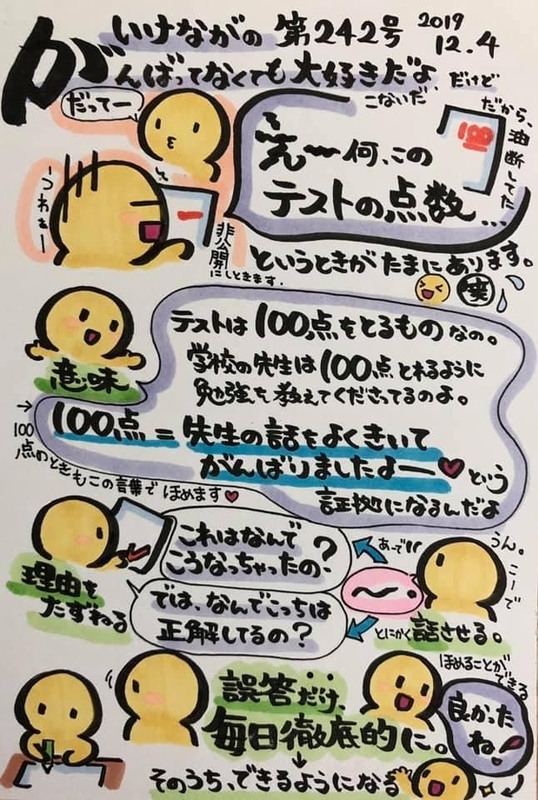 いけながの 第242号 2019 12.4
がんばってなくても大好きだよ だけど
だってー
こないだ
だから、油断してた
100
え゛ー何、この
テストの点数…
うわぁー
非公開
にしときます.
というときがたまにあります。
笑
テストは100点をとるものなの。
学校の先生は100点とれるように
勉強を教えてくださってるのよ。
意味
→100点のときもこの言葉でほめます♥
100点＝先生の話をよくきいて
がんばりましたよー♥という
証拠になるんだよ
これはなんで
こうなっちゃったの？
あってｯ!!
うん。
こーで
理由を
たずねる
では、なんでこっちは
正解してるの？
とにかく話させる。
ほめることが
できる
誤答だけ、
毎日徹底的に。
良かったね！
↓
そのうち、できるようになる